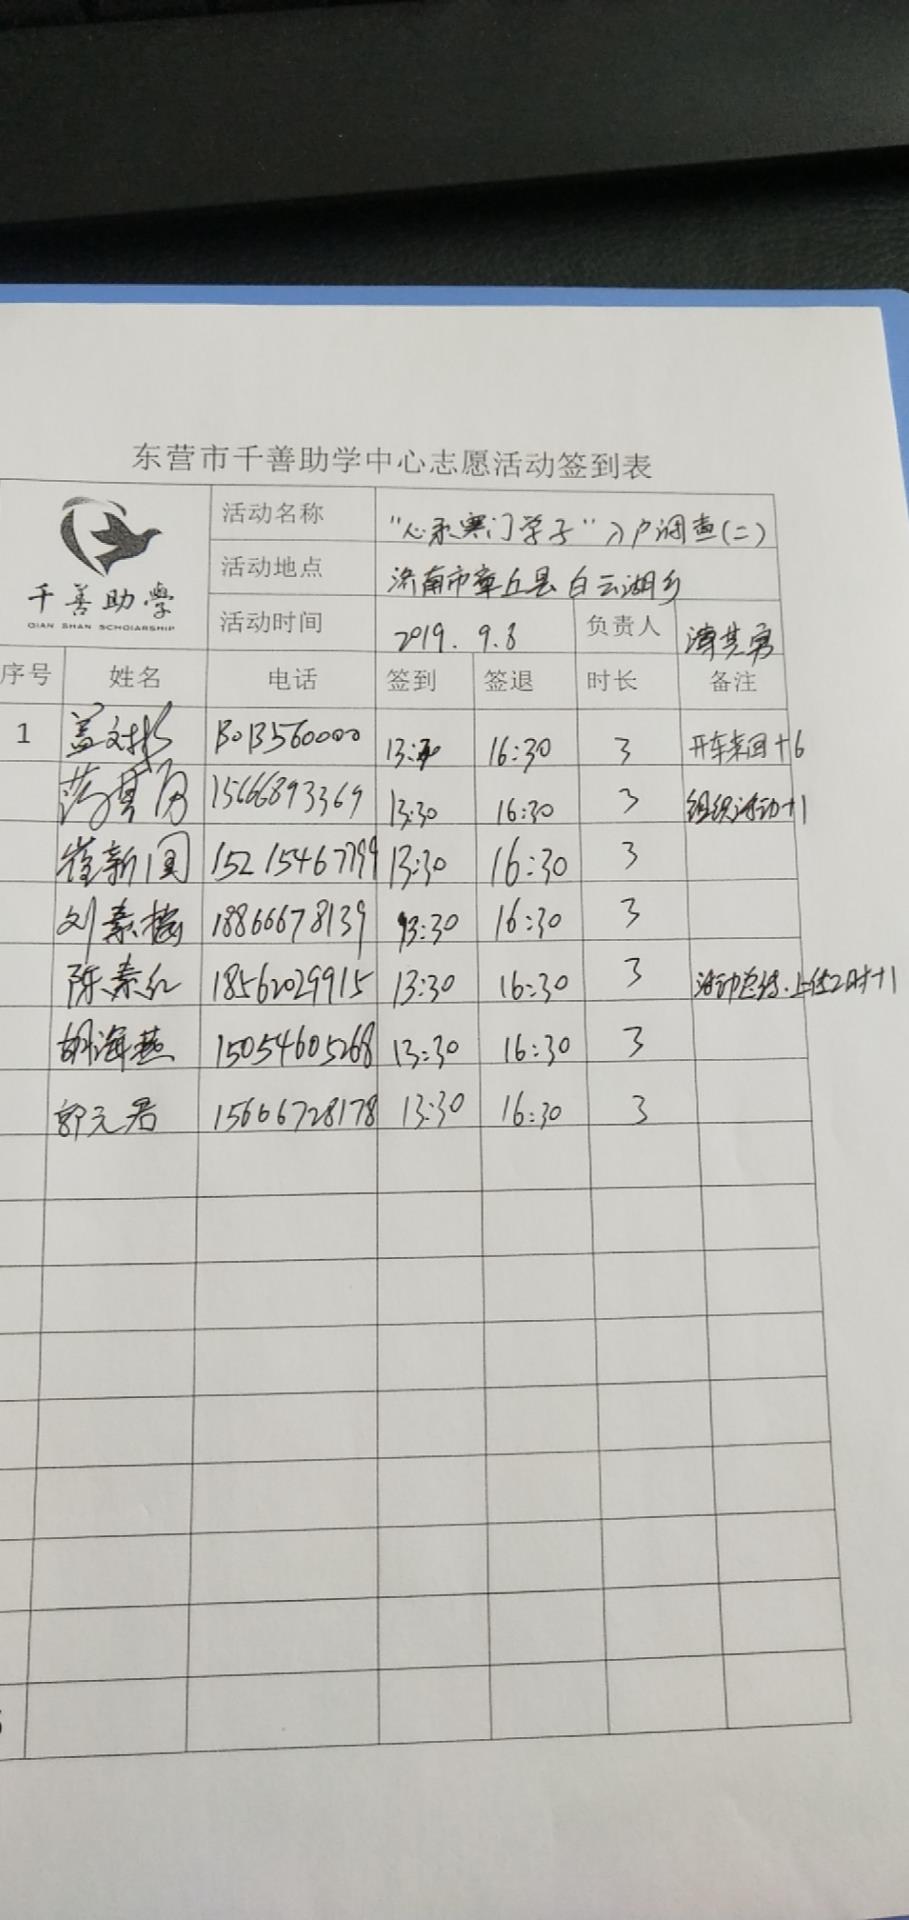 东营市千善助学中心志愿活动签到表
千善助學
QIAN SHAN SCHOLARSHIP
活动名称 "心系寒门学子"入户调查(二)
活动地点 济南市章丘县白云湖乡
活动时间 2019.9.8 负责人
序号 姓名 电话 签到 签退 时长 备注
1 盖文彬 13013560000 13:30 16:30 3 开车来回+6
15666893369 13:30 16:30 3 组织活动+1
崔新国 15215467799 13:30 16:30 3
刘素梅 18866678139 13:30 16:30 3
陈素红 18562029915 13:30 16:30 3 活动总结.上传2时+1
胡海燕 15054605268 13:30 16:30 3
郭元君 15666728178 13:30 16:30 3